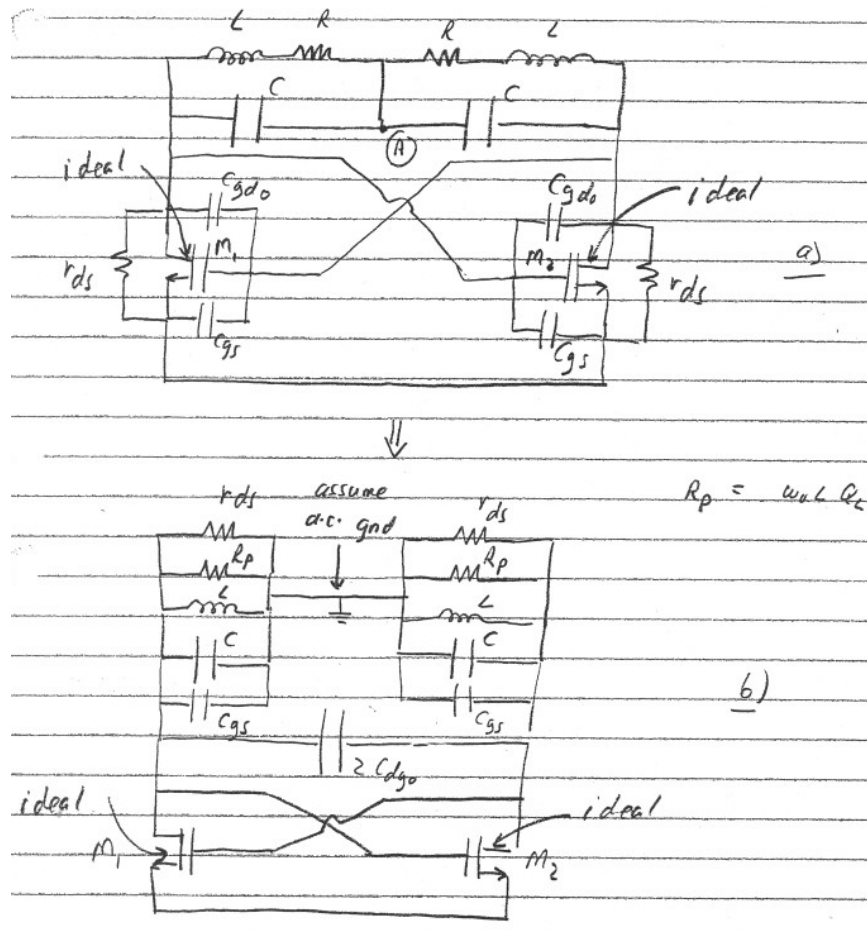 L R R L
C C
A
ideal Cgdo Cgdo ideal
M1 M2 a)
rds rds
Cgs Cgs
⇓
rds assume rds Rp = ω0L QL
a.c. gnd
Rp Rp
L L
C C
Cgs Cgs b)
2Cdgo
ideal ideal
M1 M2